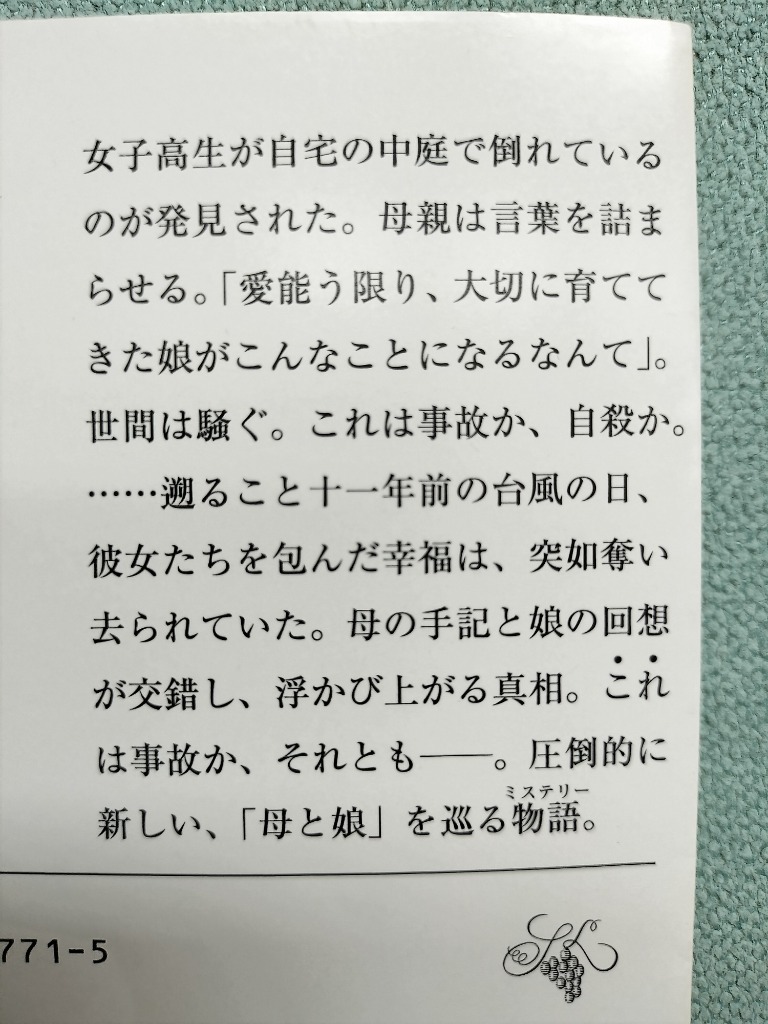 女子高生が自宅の中庭で倒れている
のが発見された。母親は言葉を詰ま
らせる。「愛能う限り、大切に育てて
きた娘がこんなことになるなんて」。
世間は騒ぐ。これは事故か、自殺か。
……遡ること十一年前の台風の日、
彼女たちを包んだ幸福は、突如奪い
去られていた。母の手記と娘の回想
が交錯し、浮かび上がる真相。これ
は事故か、それとも――。圧倒的に
ミステリー
新しい、「母と娘」を巡る物語。
771-5
SK